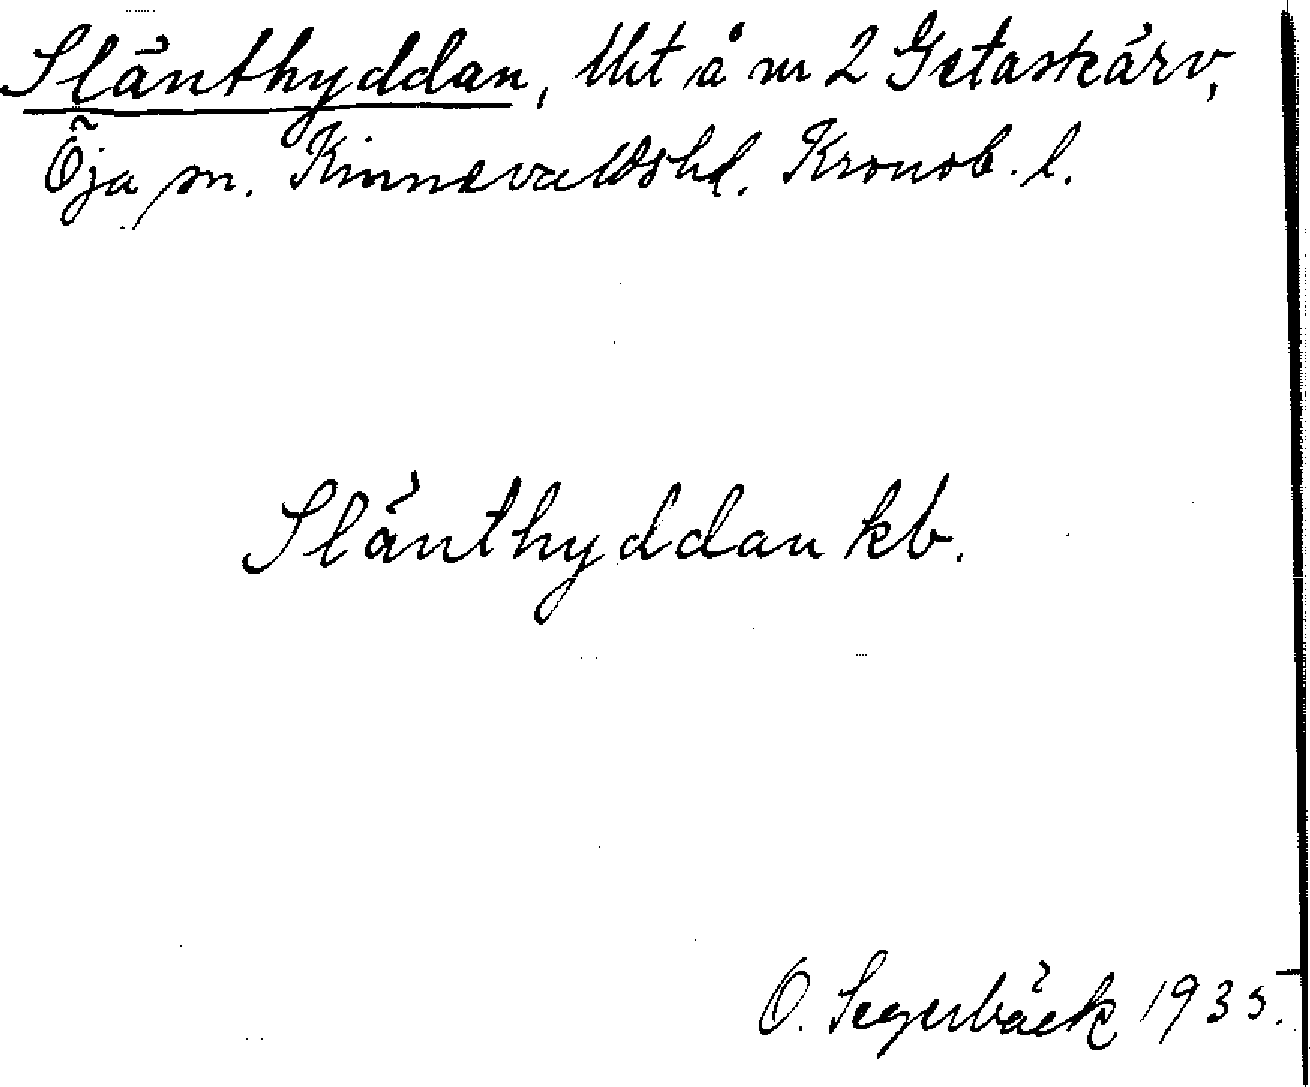 Slänthyddan, Uht å nr 2 Getaskärv,
Öja sn. Kinnevaldshd. Kronob. l.
Slänthyddan kb.
O. Segerbäck 1935.